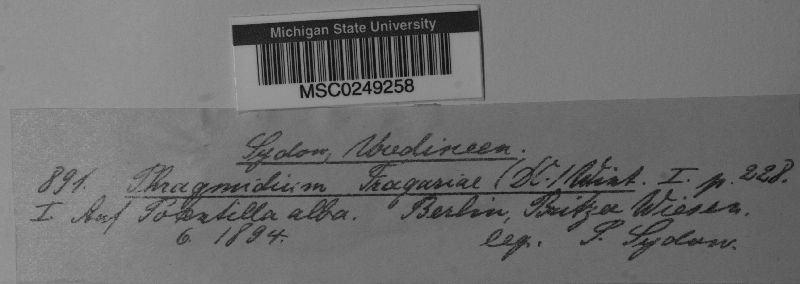 Michigan State University
MSC0249258
Sydow, Uredineen.
891. Phragmidium Fragariae (DC.) Wint. I. p. 228.
I Auf Potentilla alba. Berlin, Britzer Wiesen.
6. 1894. leg. P. Sydow.